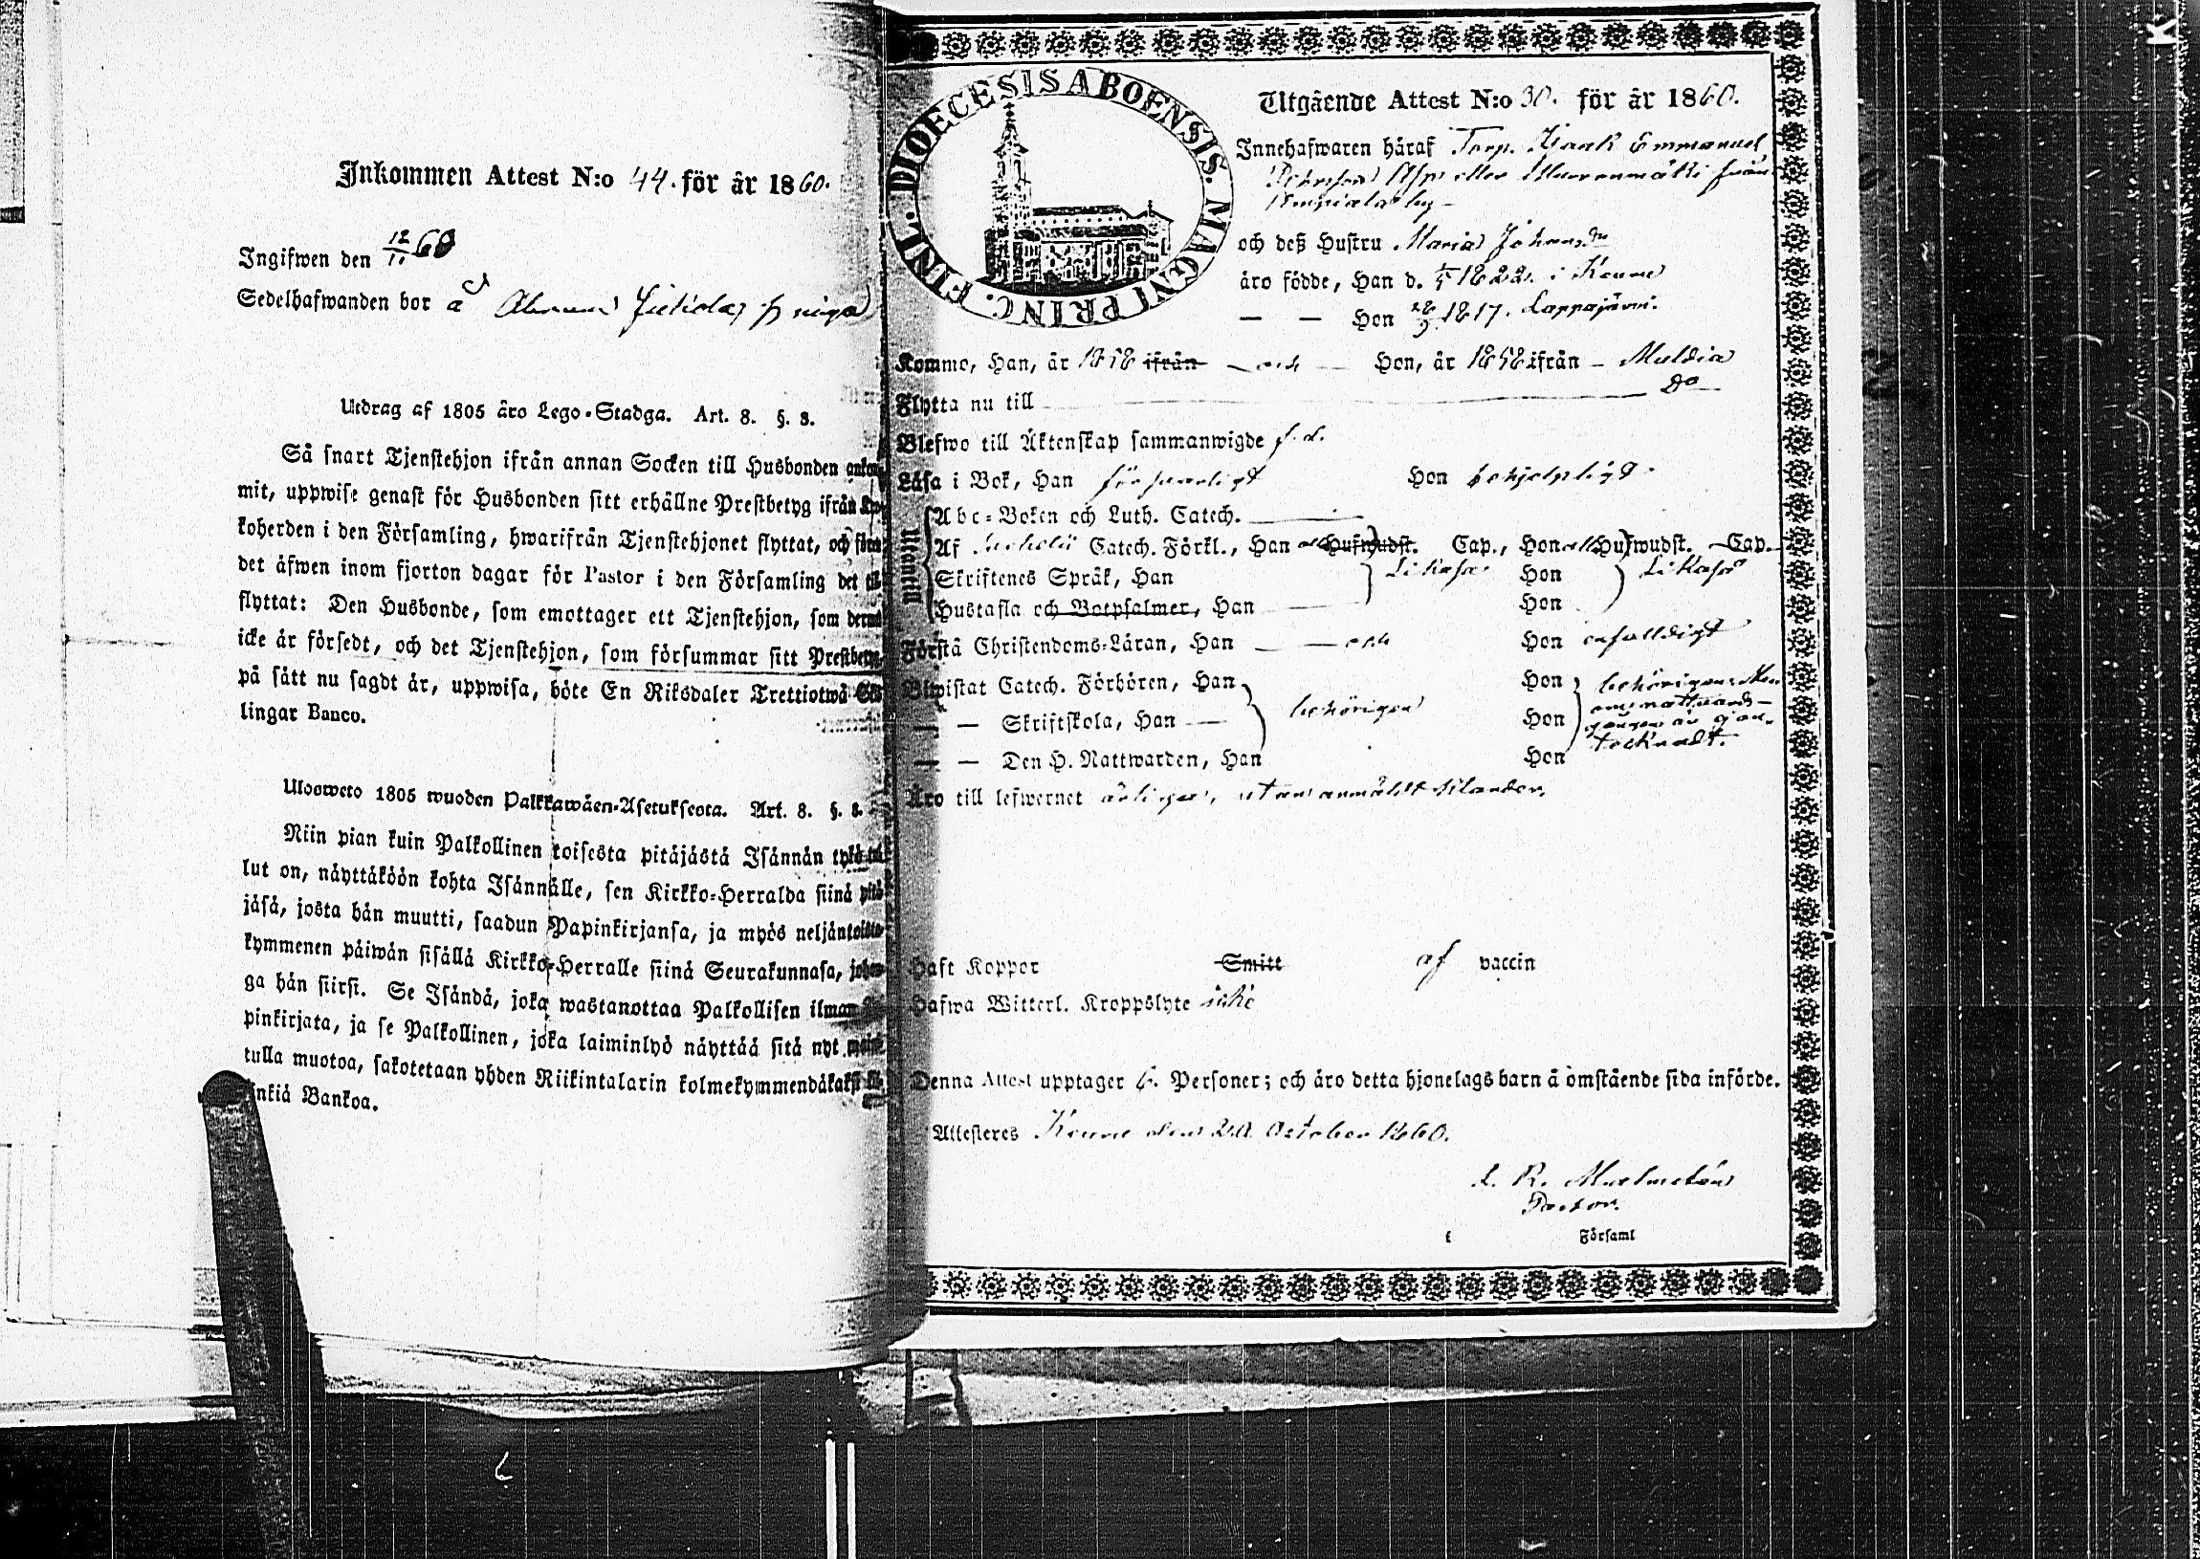 Inkommen Attest N:o 44. för år 1860.
Ingifwen den 12/11 60
Sedelhafwanden bor å
Utdrag af 1805 åro Lego-Stadga. Art. 8. §. 8.
Så snart Tjenstehjon ifrån annan Socken till Husbonden
mit, uppwise genast för Husbonden sitt erhållne Prestbetyg ifrån
koherden i den Församling, hwarifrån Tjenstehjonet flyttat, och
det äfwen inom fjorton dagar för Pastor i den Församling det
flyttat: Den Husbonde, som emottager ett Tjenstehjon, som
icke är försedt, och det Tjenstehjon, som försummar sitt
på sätt nu sagdt är, uppwisa, böte En Riksdaler Trettiotwå
lingar Banco.
Ulosweto 1805 wuoden Palkkawäen-Asetuksesta. Art. 8. §. 8.
Niin pian kuin Palkollinen toisesta pitäjästä Isännän
lut on, näyttäköön kohta Isännälle, sen Kirkko-Herralda siinä
jäsä, josta hän muutti, saadun Papinkirjansa, ja myös
kymmenen päiwän sisällä Kirkko-Herralle siinä Seurakunnasa,
ga hän siirsi. Se Isändä, joka wastanottaa Palkollisen ilman
pinkirjata, ja se Palkollinen, joka laiminlyö näyttää sitä nyt
tulla muotoa, sakotetaan yhden Riikintalarin kolmekymmendäkaksi
inkiä Bankoa.
FINL. DIOECESIS ABOENSIS. MAGNI PRINC.
Utgående Attest N:o 30. för år 1860.
Innehafwaren häraf Torp. Isaak Emmanuel
eller från
och deß Hustru Maria Johansdr
äro födde, Han d. 1822. i Keuru
— — Hon 28/9 1817. Lappajärvi.
Kommo, Han, år 1858 ifrån och Hon, år 1858 ifrån – Multia
Flytta nu till Do
Blefwo till Äktenskap sammanwigde
Läsa i Bok, Han försvarligt Hon behjelpligt
Utantill
Abc-Boken och Luth. Catech.
Af Catech. Förkl., Han allt Hufwudst. Cap., Hon allt Hufwudst. Cap.
Skriftenes Språk, Han Likaså Hon Likaså
Hustafla och Botpsalmer, Han Hon
Förstå Christendoms-Läran, Han — och Hon enfalldigt
Bewistat Catech. Förhören, Han Hon
— — Skriftskola, Han behörigen Hon
— — Den H. Nattwarden, Han Hon
behörigen: Men
om nattvards-
gången är ej an-
tecknadt.
Äro till lefwernet ärlige, utan anmäldt
Haft Koppor Smitt af vaccin
Hafwa Witterl. Kroppslyte icke
Denna Attest upptager 6. Personer; och äro detta hjonelags barn å omstående sida införde.
Attesteres Keuru den 20 October 1860.
Pastor.
i Församl